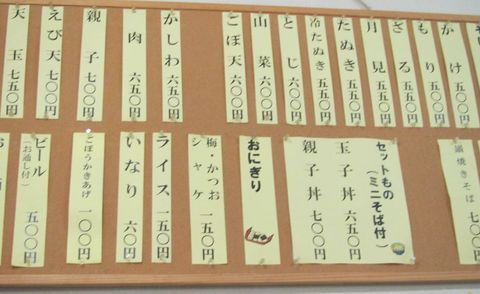 かけ 五〇〇円
もり 五〇〇円
ざる 五五〇円
月見 五五〇円
たぬき 五五〇円
冷たぬき 五五〇円
とじ 六〇〇円
山菜 六〇〇円
ごぼ天 六〇〇円
かしわ 六五〇円
肉 六五〇円
親子 七〇〇円
えび天 七〇〇円
天玉 七五〇円
焼きそば 七〇〇円
セットもの
(ミニそば付)
玉子丼 六五〇円
親子丼 七〇〇円
おにぎり
梅・かつお
シャケ 一五〇円
ライス 一五〇円
いなり 六〇円
ごぼうかきあげ 一〇〇円
ビール
(お通し付) 五〇〇円